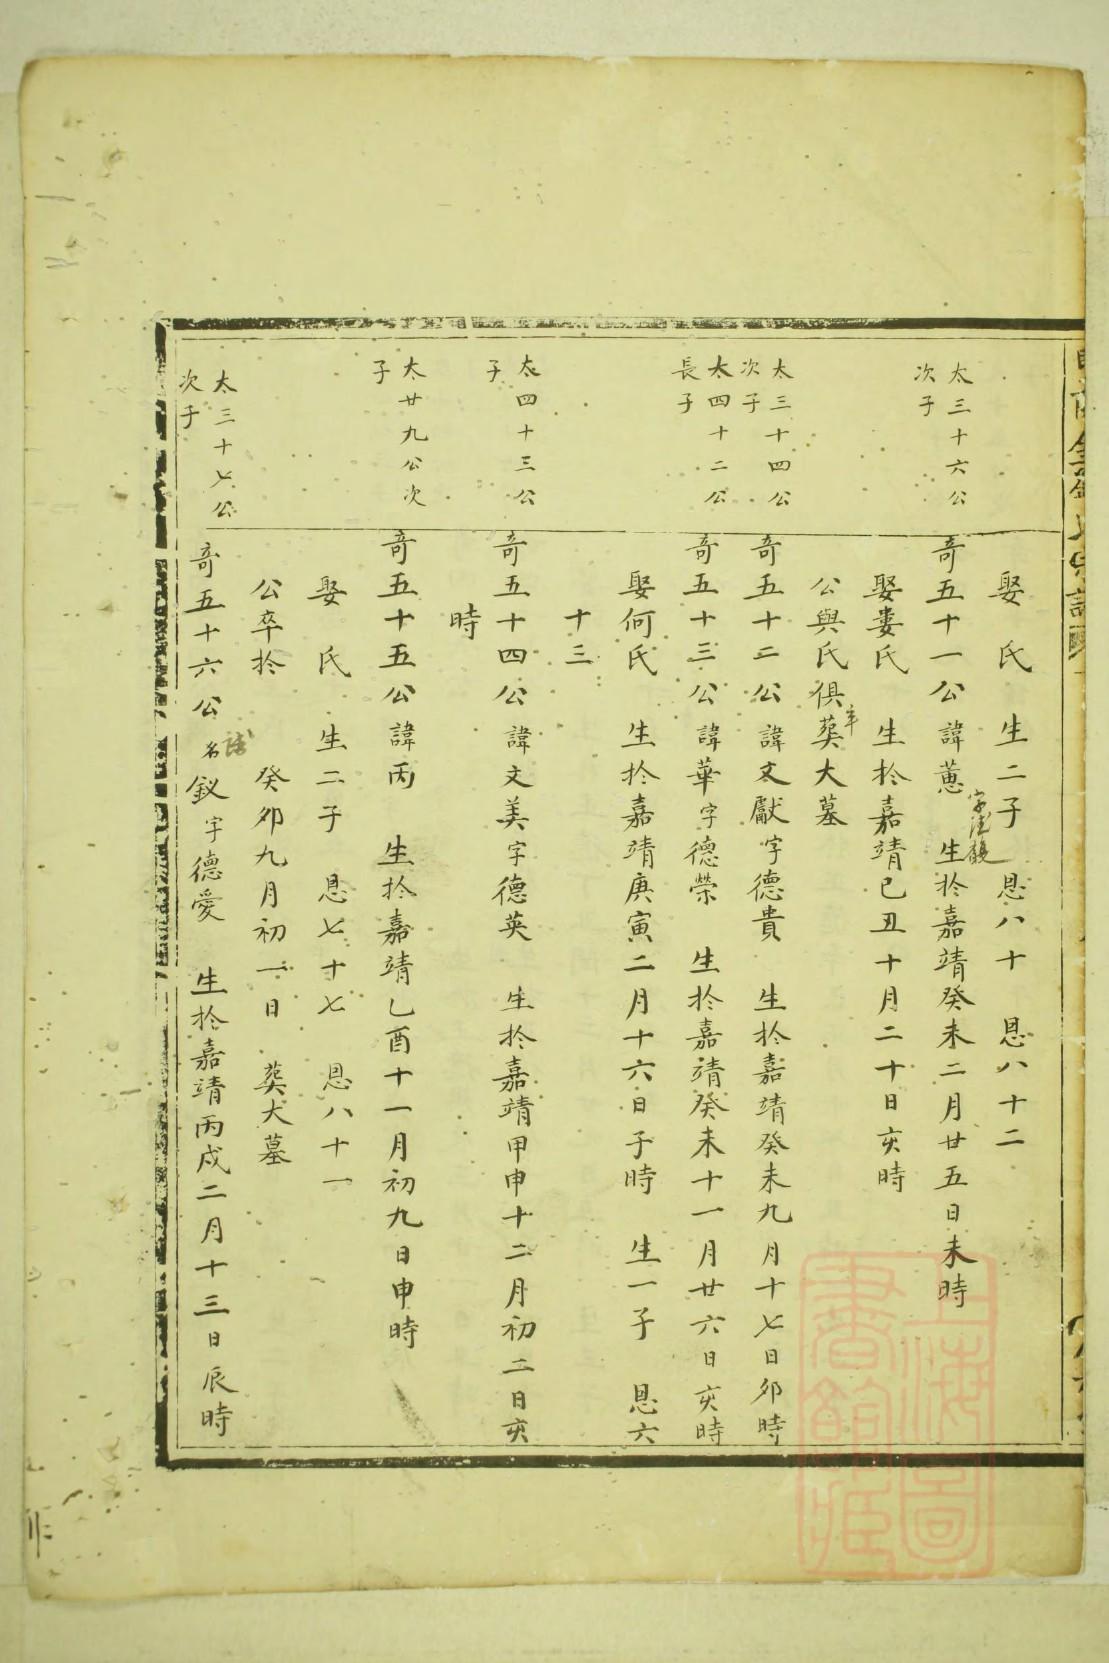 娶 氏 生二子 恩八十 恩八十二
太三十六公
次子
奇五十一公諱蕙 生於嘉靖癸未二月廿五日未時
娶婁氏 生於嘉靖己丑十月二十日亥時
公與氏俱葬大墓
太三十四公
次子
奇五十二公諱文獻字德貴 生於嘉靖癸未九月十七日卯時
太四十二公
長子
奇五十三公諱華字德榮 生於嘉靖癸未十一月廿六日亥時
娶何氏 生於嘉靖庚寅二月十六日子時 生一子 恩六
十三
太四十三公
子
奇五十四公諱文美字德英 生於嘉靖甲申十二月初二日亥
時
太廿九公次
子
奇五十五公諱丙 生於嘉靖乙酉十一月初九日申時
娶 氏 生二子 恩七十七 恩八十一
公卒於 癸卯九月初一日 葬大墓
太三十七公
次子
奇五十六公名釵字德愛 生於嘉靖丙戌二月十三日辰時
上海圖
書館藏